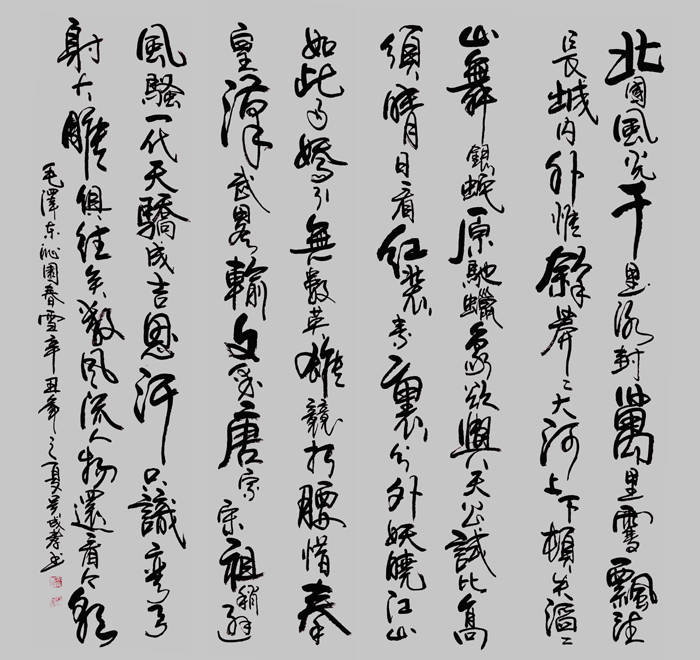 北國風光千里冰封萬里雪飄望
長城內外惟餘莽〻大河上下頓失滔〻
山舞銀蛇原馳蠟象欲與天公試比高
須晴日看紅裝素裹分外妖嬈江山
如此多嬌引無數英雄競折腰惜秦
皇漢武略輸文采唐宗宋祖稍遜
風騷一代天驕成吉思汗只識彎弓
射大雕俱往矣數風流人物還看今朝
毛澤東沁園春雪辛丑年之夏